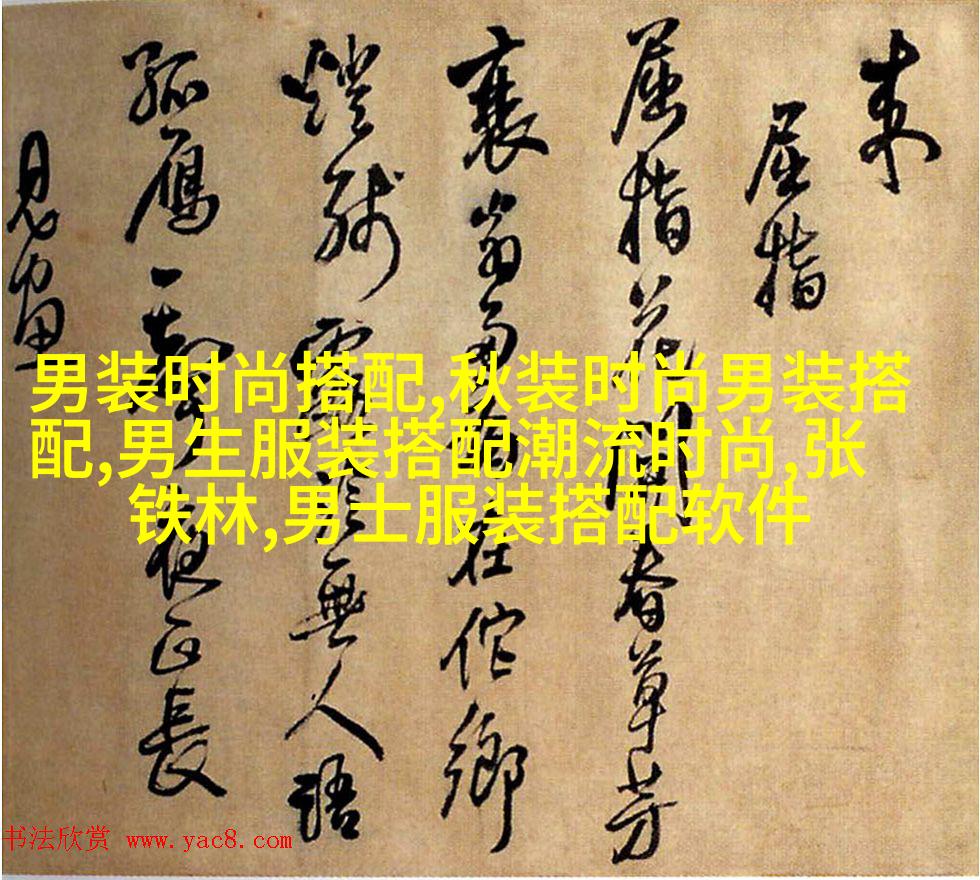 屈指
屈指花開春草芳
衰翁多在佗鄉
燈殘無人語
孤雁一聲夜正長
男装时尚搭配,秋装时尚男装搭
配,男生服装搭配潮流时尚,张
铁林,男士服装搭配软件
书法欣赏 www.yac8.com